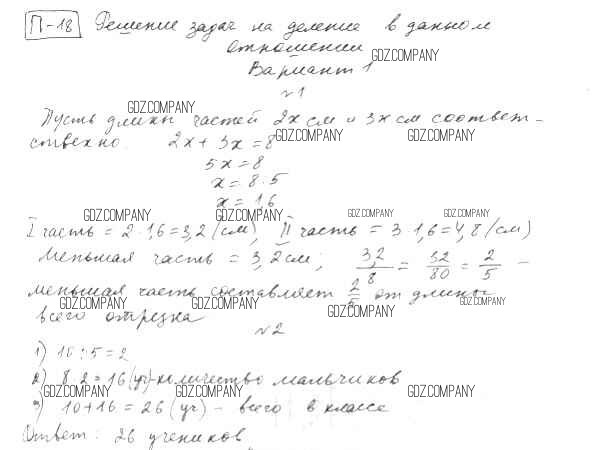 П-18 Решение задач на деление в данном
отношении
GDZ.COMPANY
Вариант 1
№1
GDZ.COMPANY
Пусть длины частей 2x см и 3x см соответ-
ственно. 2x + 3x = 8
GDZ.COMPANY GDZ.COMPANY
5x = 8
x = 8 : 5
x = 1,6
GDZ.COMPANY GDZ.COMPANY GDZ.COMPANY GDZ.COMPANY
I часть = 2 · 1,6 = 3,2 (см), II часть = 3 · 1,6 = 4,8 (см)
Меньшая часть = 3,2 см; 3,2/8 = 32/80 = 2/5 –
меньшая часть составляет 2/5 от длины
GDZ.COMPANY GDZ.COMPANY GDZ.COMPANY GDZ.COMPANY
всего отрезка
№2
1) 10 : 5 = 2
2) 8 · 2 = 16 (уч) - количество мальчиков
GDZ.COMPANY GDZ.COMPANY GDZ.COMPANY GDZ.COMPANY
3) 10 + 16 = 26 (уч) – всего в классе
Ответ: 26 учеников